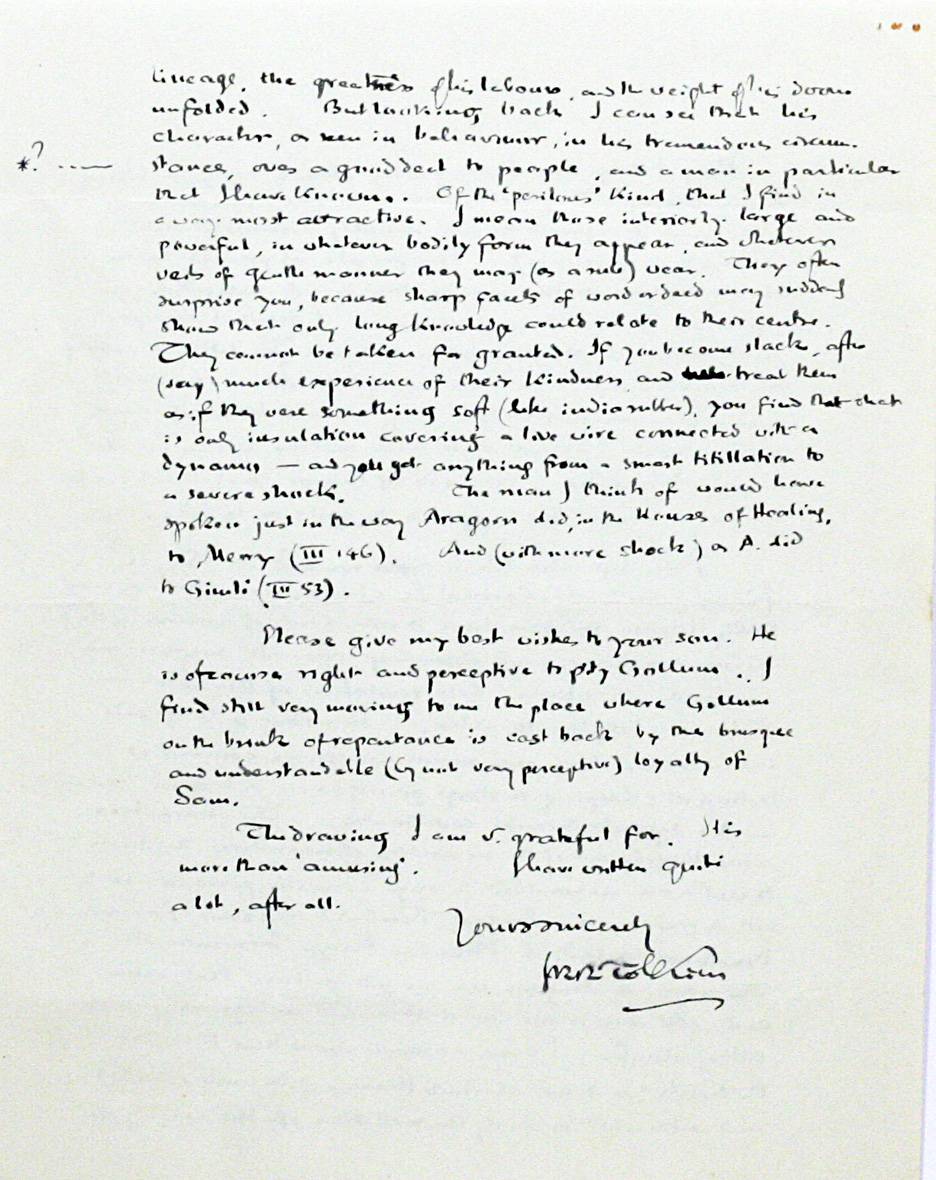 lineage, the greatness of his labours, and the weight of his doom
unfolded. But looking back I can see that his
character, as seen in behaviour, in his tremendous circum-
*? stance, owes a good deal to people, and a man in particular
that I have known. Of the 'perilous' kind, that I find in
a way most attractive. I mean those interiorly large and
powerful, in whatever bodily form they appear, and whatever
veils of gentle manner they may (as a rule) wear. They often
surprise you, because sharp facets of word or deed may suddenly
show that only long knowledge could relate to their centre.
They cannot be taken for granted. If you become slack, after
(say) much experience of their kindness and treat them
as if they were something soft (like indiarubber), you find that that
is only insulation covering a live wire connected with a
dynamo — and you get anything from a smart titillation to
a severe shock. The man I think of would have
spoken just in the way Aragorn did, in the Houses of Healing,
to Merry (III 146). And (with more shock) as A. did
to Gimli (III 53).
Please give my best wishes to your son. He
is of course right and perceptive to pity Gollum. I
find still very moving to me the place where Gollum
on the brink of repentance is cast back by the brusque
and understandable (if not very perceptive) loyalty of
Sam.
The drawing I am v. grateful for. It is
more than 'amusing'. I have written quite
a lot, after all.
Yours sincerely
JRR Tolkien